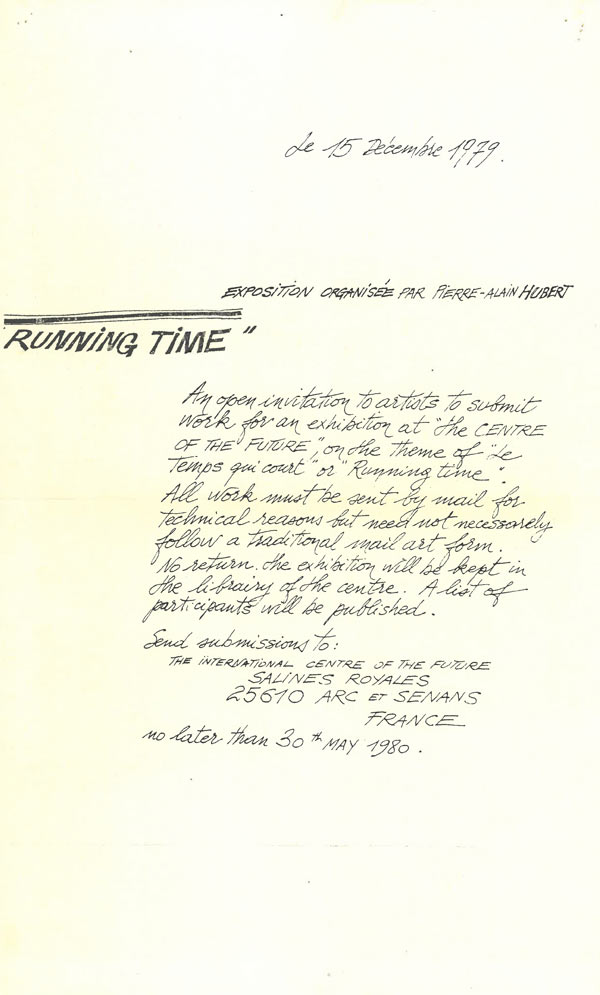 Le 15 Décembre 1979.
EXPOSITION ORGANISÉE PAR PIERRE-ALAIN HUBERT
RUNNING TIME "
An open invitation to artists to submit
work for an exhibition at "the CENTRE
OF THE FUTURE", on the theme of "Le
Temps qui court" or "Running time".
All work must be sent by mail for
technical reasons but need not necessarely
follow a traditional mail art form.
No return. the exhibition will be kept in
the librairy of the centre. A list of
participants will be published.
Send submissions to:
THE INTERNATIONAL CENTRE OF THE FUTURE
SALINES ROYALES
25610 ARC ET SENANS
FRANCE
no later than 30th MAY 1980.